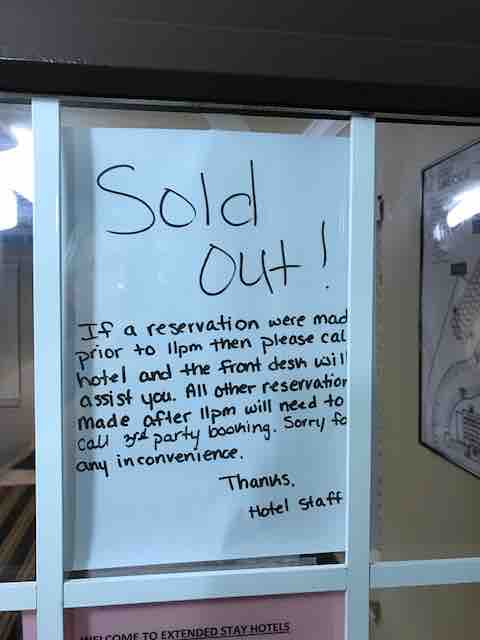 Sold
Out!
If a reservation were mad
prior to 11pm then please cal
hotel and the front desk will
assist you. All other reservation
made after 11pm will need to
call 3rd party booking. Sorry fo
any inconvenience.
Thanks,
Hotel Staff
WELCOME TO EXTENDED STAY HOTELS